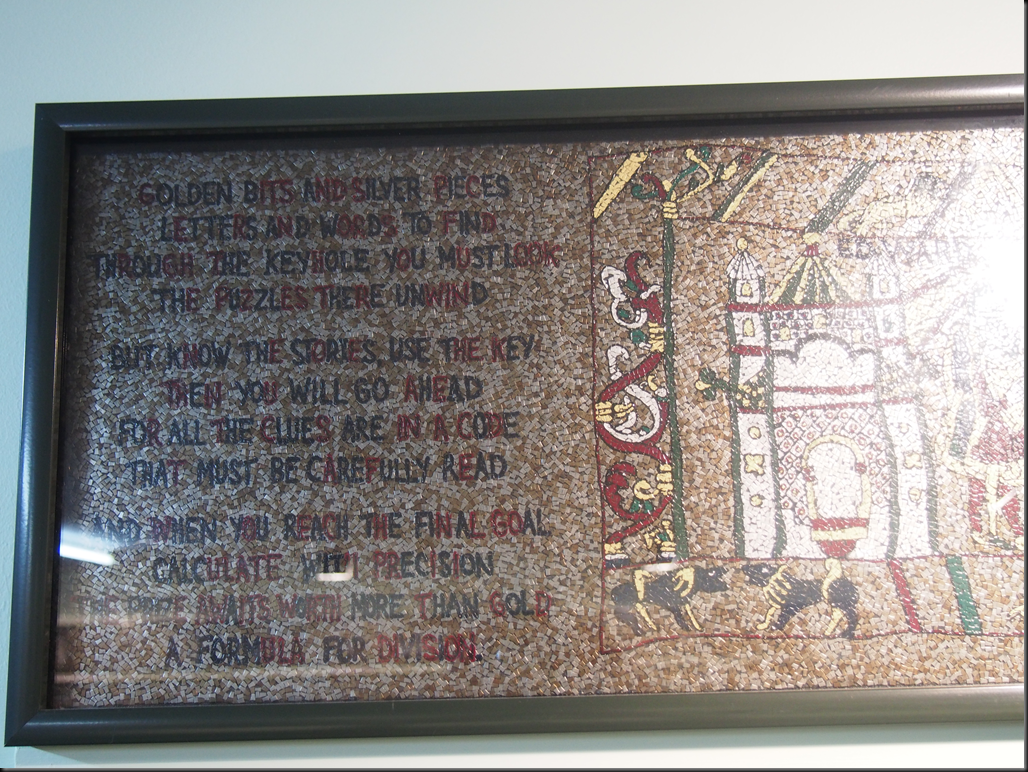 GOLDEN BITS AND SILVER PIECES
LETTERS AND WORDS TO FIND
THROUGH THE KEYHOLE YOU MUST LOOK
THE PUZZLES THERE UNWIND
BUT KNOW THE STORIES, USE THE KEY
THEN YOU WILL GO AHEAD
FOR ALL THE CLUES ARE IN A CODE
THAT MUST BE CAREFULLY READ
AND WHEN YOU REACH THE FINAL GOAL
CALCULATE WITH PRECISION
THE PRIZE AWAITS WORTH MORE THAN GOLD
A FORMULA FOR DIVISION.